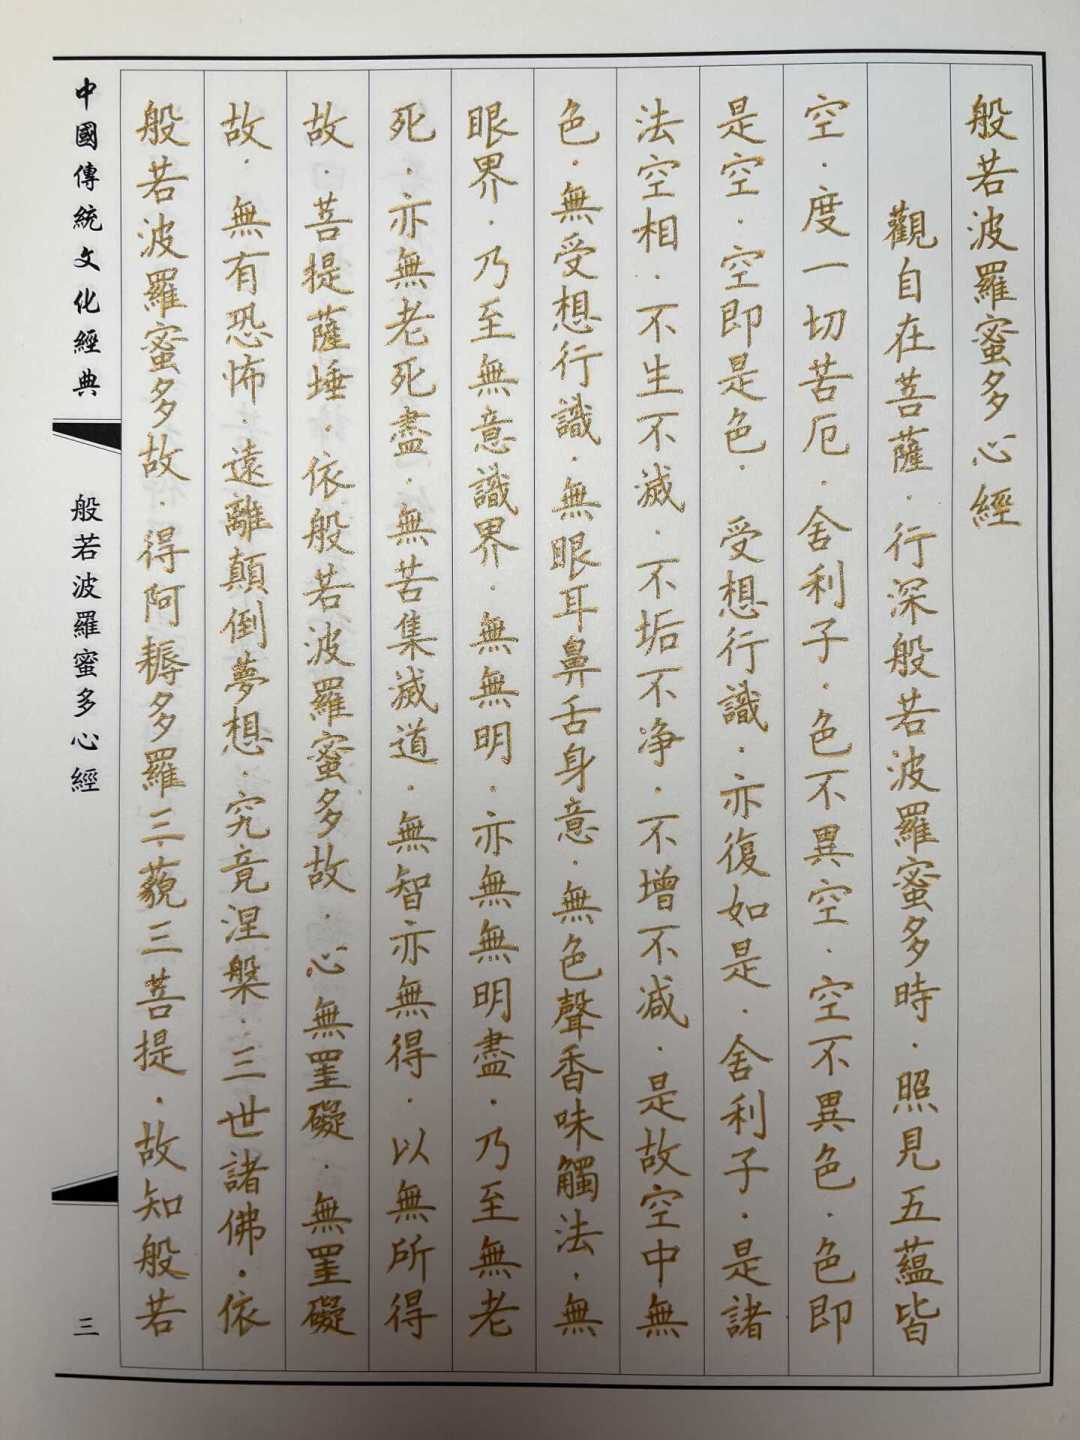 般若波羅蜜多心經
觀自在菩薩．行深般若波羅蜜多時．照見五蘊皆
空．度一切苦厄．舍利子．色不異空．空不異色．色即
是空．空即是色．受想行識．亦復如是．舍利子．是諸
法空相．不生不滅．不垢不净．不增不减．是故空中無
色．無受想行識．無眼耳鼻舌身意．無色聲香味觸法．無
眼界．乃至無意識界．無無明．亦無無明盡．乃至無老
死．亦無老死盡．無苦集滅道．無智亦無得．以無所得
故．菩提薩埵．依般若波羅蜜多故．心無罣礙．無罣礙
故．無有恐怖．遠離顛倒夢想．究竟涅槃．三世諸佛．依
般若波羅蜜多故．得阿耨多羅三藐三菩提．故知般若
中國傳統文化經典
般若波羅蜜多心經
三